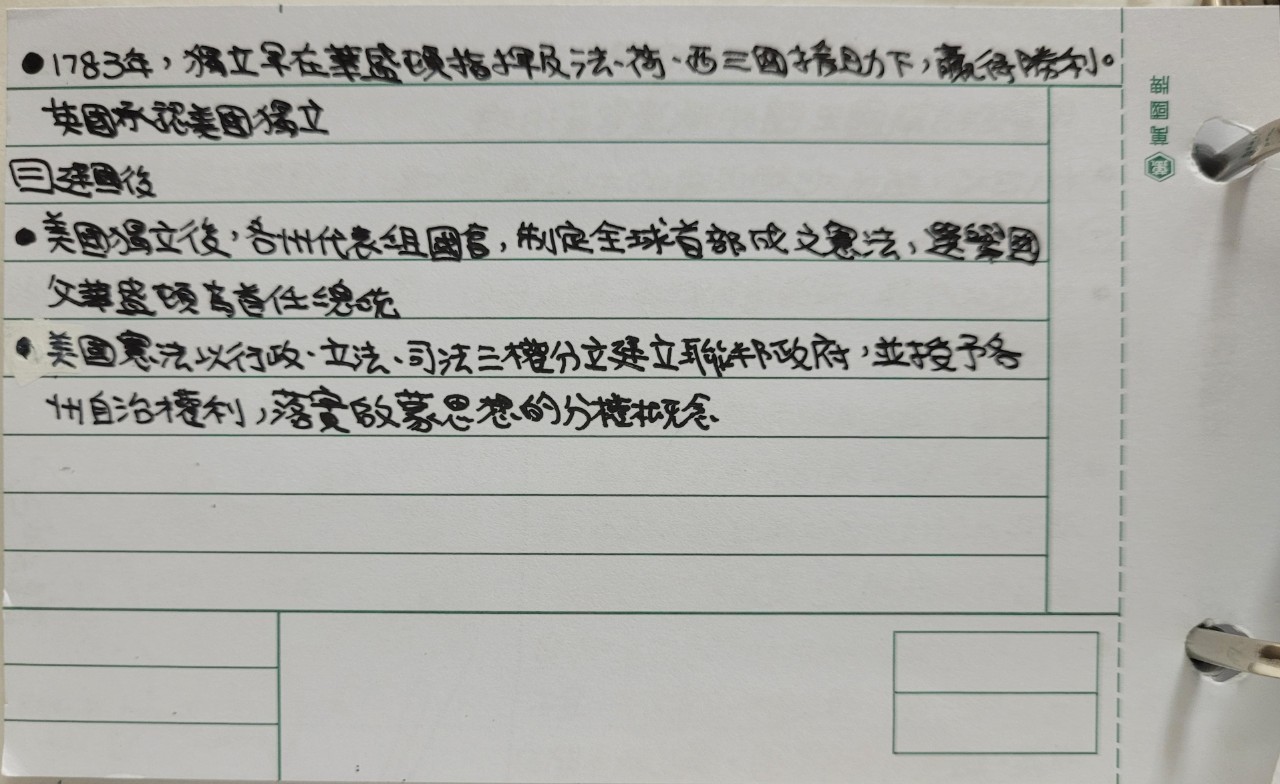 ●1783年，獨立軍在華盛頓指揮及法、荷、西三國援助下，贏得勝利。
英國承認美國獨立
三建國後
●美國獨立後，各州代表組國會，制定全球首部成文憲法，選舉國
父華盛頓為首任總統
●美國憲法以行政、立法、司法三權分立建立聯邦政府，並授予各
州自治權利，落實啟蒙思想的分權概念
萬國牌